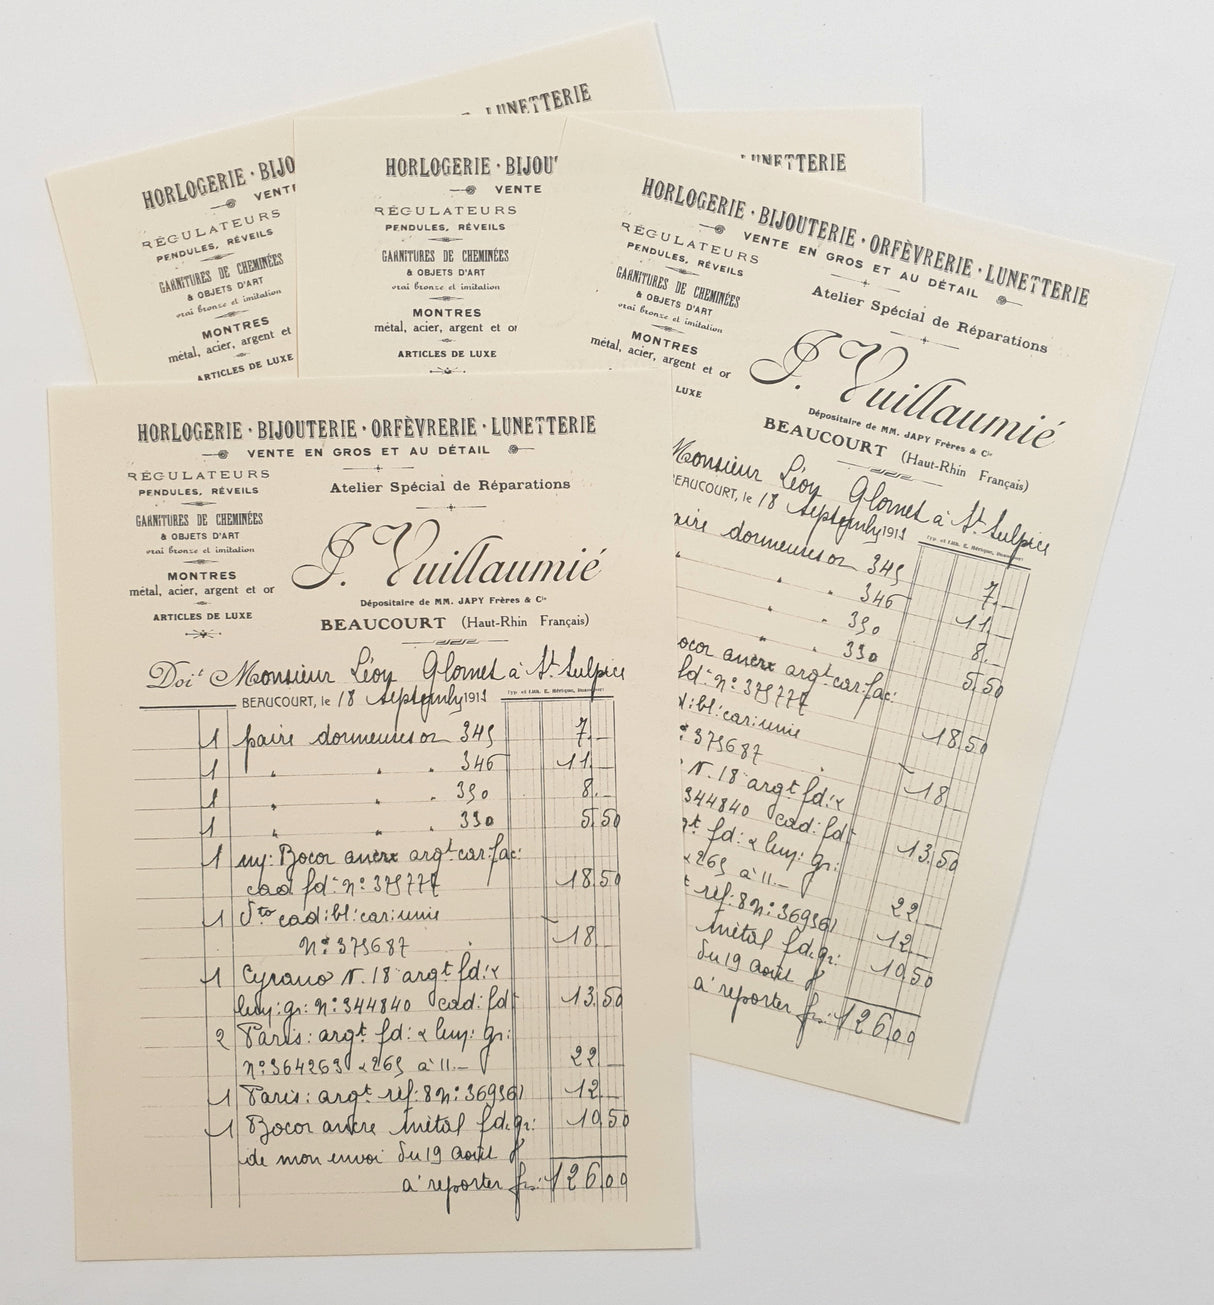 LUNETTERIE
HORLOGERIE · BIJO
VENTE
RÉGULATEURS
PENDULES, RÉVEILS
GARNITURES DE CHEMINÉES
& OBJETS D'ART
vrai bronze et imitation
MONTRES
métal, acier, argent et
ARTICLES DE LUXE
HORLOGERIE · BIJOU
VENTE
RÉGULATEURS
PENDULES, RÉVEILS
GARNITURES DE CHEMINÉES
& OBJETS D'ART
vrai bronze et imitation
MONTRES
métal, acier, argent et or
ARTICLES DE LUXE
LUNETTERIE
HORLOGERIE · BIJOUTERIE · ORFÈVRERIE · LUNETTERIE
VENTE EN GROS ET AU DÉTAIL
RÉGULATEURS
PENDULES, RÉVEILS
GARNITURES DE CHEMINÉES
& OBJETS D'ART
vrai bronze et imitation
MONTRES
métal, acier, argent et or
LUXE
Atelier Spécial de Réparations
J. Vuillaumié
Dépositaire de MM. JAPY Frères & Cie
BEAUCOURT (Haut-Rhin Français)
Monsieur Léon Glornet à St Sulpice
BEAUCOURT, le 18 septembre 1911
Typ et Lith. E. Hérique, Beaucourt
paire dormeuses or 345 7. —
346 11
350 8. —
330 5.50
Bocor ancre argt car: fac:
fd: n: 375777 18.50
d: bl: car: unie
375687 18
N. 18 argt fd: &
344840 cad: fd: 13.50
argt fd: & luy: gr:
& 265 à 11. — 22
réf: 8 n: 369561 12
métal fd. gr: 10.50
du 19 août
à reporter frs: 126,00
HORLOGERIE · BIJOUTERIE · ORFÈVRERIE · LUNETTERIE
VENTE EN GROS ET AU DÉTAIL
RÉGULATEURS
PENDULES, RÉVEILS
GARNITURES DE CHEMINÉES
& OBJETS D'ART
vrai bronze et imitation
MONTRES
métal, acier, argent et or
ARTICLES DE LUXE
Atelier Spécial de Réparations
J. Vuillaumié
Dépositaire de MM. JAPY Frères & Cie
BEAUCOURT (Haut-Rhin Français)
Doit Monsieur Léon Glornet à St Sulpice
BEAUCOURT, le 18 septembre 1911
Typ et Lith. E. Hérique, Beaucourt
1 paire dormeuses or 345 7. —
1 " " " 346 11. —
1 " " " 350 8. —
1 " " " 330 5.50
1 Bocor ancre argt car: fac:
cad fd: n: 375777 18.50
1 dto cad: bl: car: unie
N: 375687 18
1 Cyrano N. 18 argt fd: &
luy: gr: n: 344840 cad: fd: 13.50
2 Paris: argt fd: & luy: gr:
N: 364263 & 265 à 11. — 22
1 Paris: argt réf: 8 n: 369561 12
1 Bocor ancre métal fd. gr: 10.50
de mon envoi du 19 août
à reporter frs: 126,00